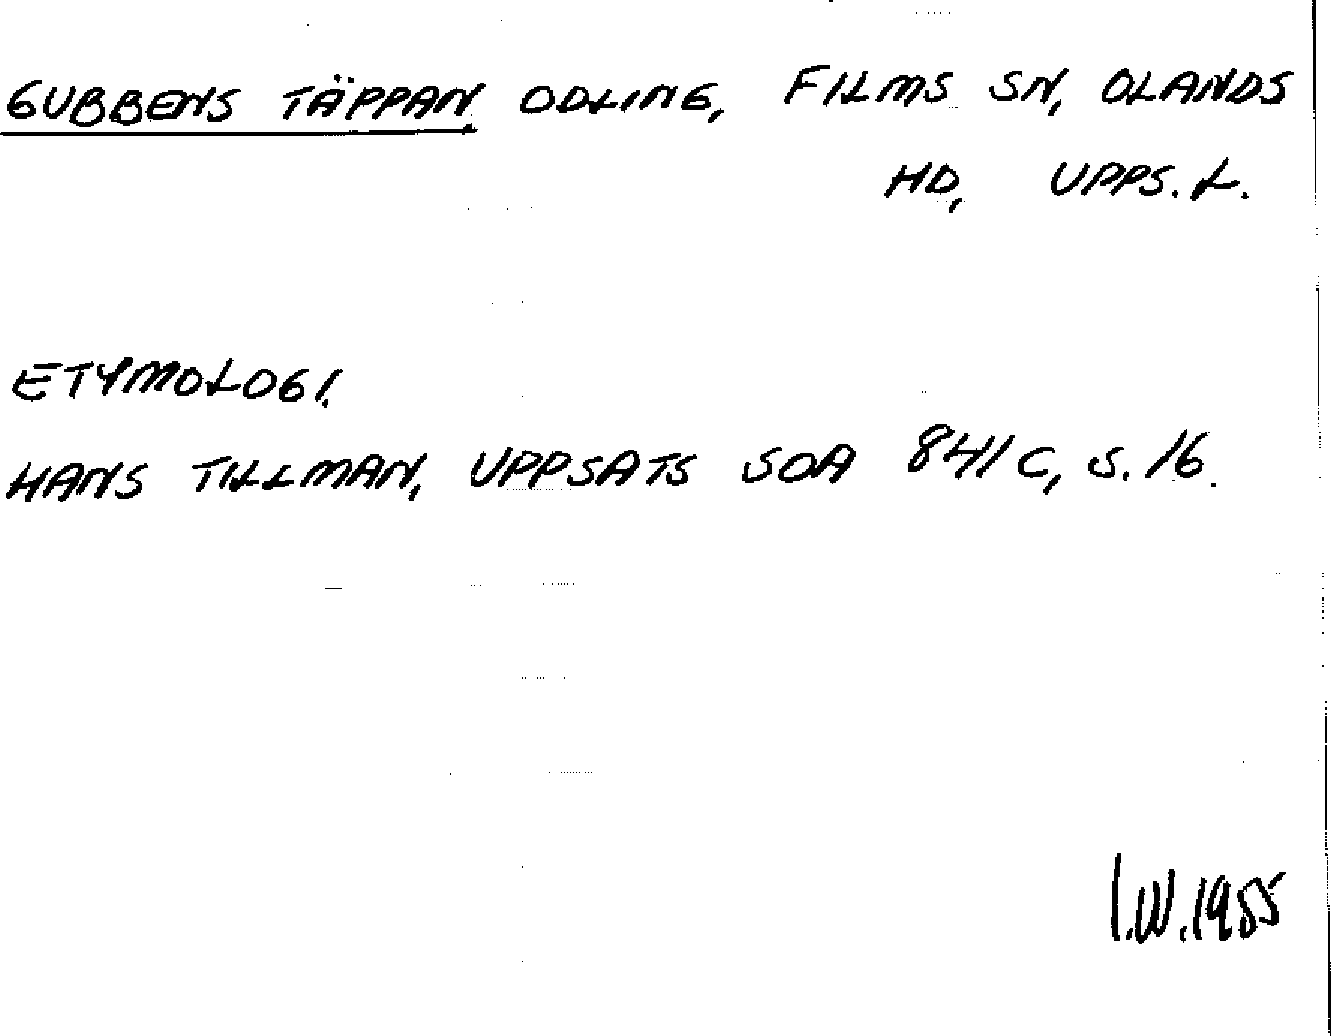 GUBBENS TÄPPAN, ODLING, FILMS SN, OLANDS
HD, UPPS. L.
ETYMOLOGI.
HANS TILLMAN, UPPSATS SOA 841 C, S. 16.
I.W. 1955